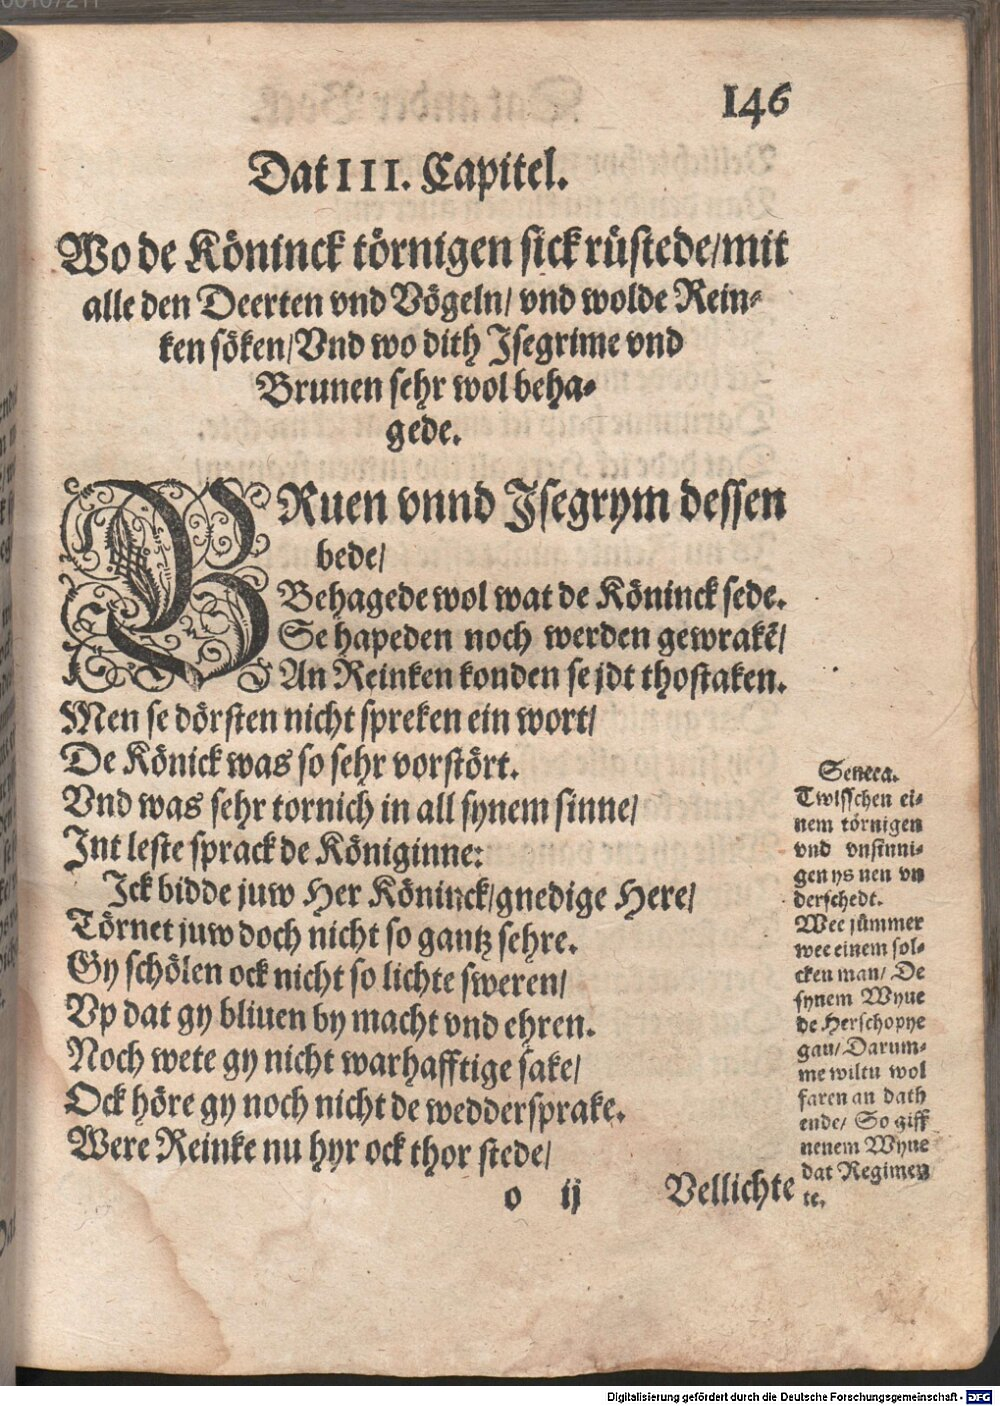 146
Dat III. Capitel.
Wo de Köninck törnigen sick rüstede/mit
alle den Deerten vnd Vögeln/ vnd wolde Rein-
ken söken/Vnd wo dith Isegrime vnd
Brunen sehr wol beha-
gede.
BRuen vnnd Isegrym dessen
bede/
Behagede wol wat de Köninck sede.
Se hapeden noch werden gewrakē/
An Reinken konden se jdt thostaken.
Men se dörsten nicht spreken ein wort/
De Könick was so sehr vorstört.
Vnd was sehr tornich in all synem sinne/
Int leste sprack de Königinne:
Ick bidde juw Her Köninck/gnedige Here/
Törnet juw doch nicht so gantz sehre.
Gy schölen ock nicht so lichte sweren/
Vp dat gy bliuen by macht vnd ehren.
Noch wete gy nicht warhafftige sake/
Ock höre gy noch nicht de weddersprake.
Were Reinke nu hyr ock thor stede/
o ij
Vellichte
Seneca.
Twisschen ei-
nem törnigen
vnd vnsinni-
gen ys nen vn
derschedt.
Wee jümmer
wee einem sol-
cken man/ De
synem Wyue
de Herschopye
gau/ Darum-
me wiltu wol
faren an dath
ende/ So giff
nenem Wyue
dat Regimen
te.
Digitalisierung gefördert durch die Deutsche Forschungsgemeinschaft - DFG